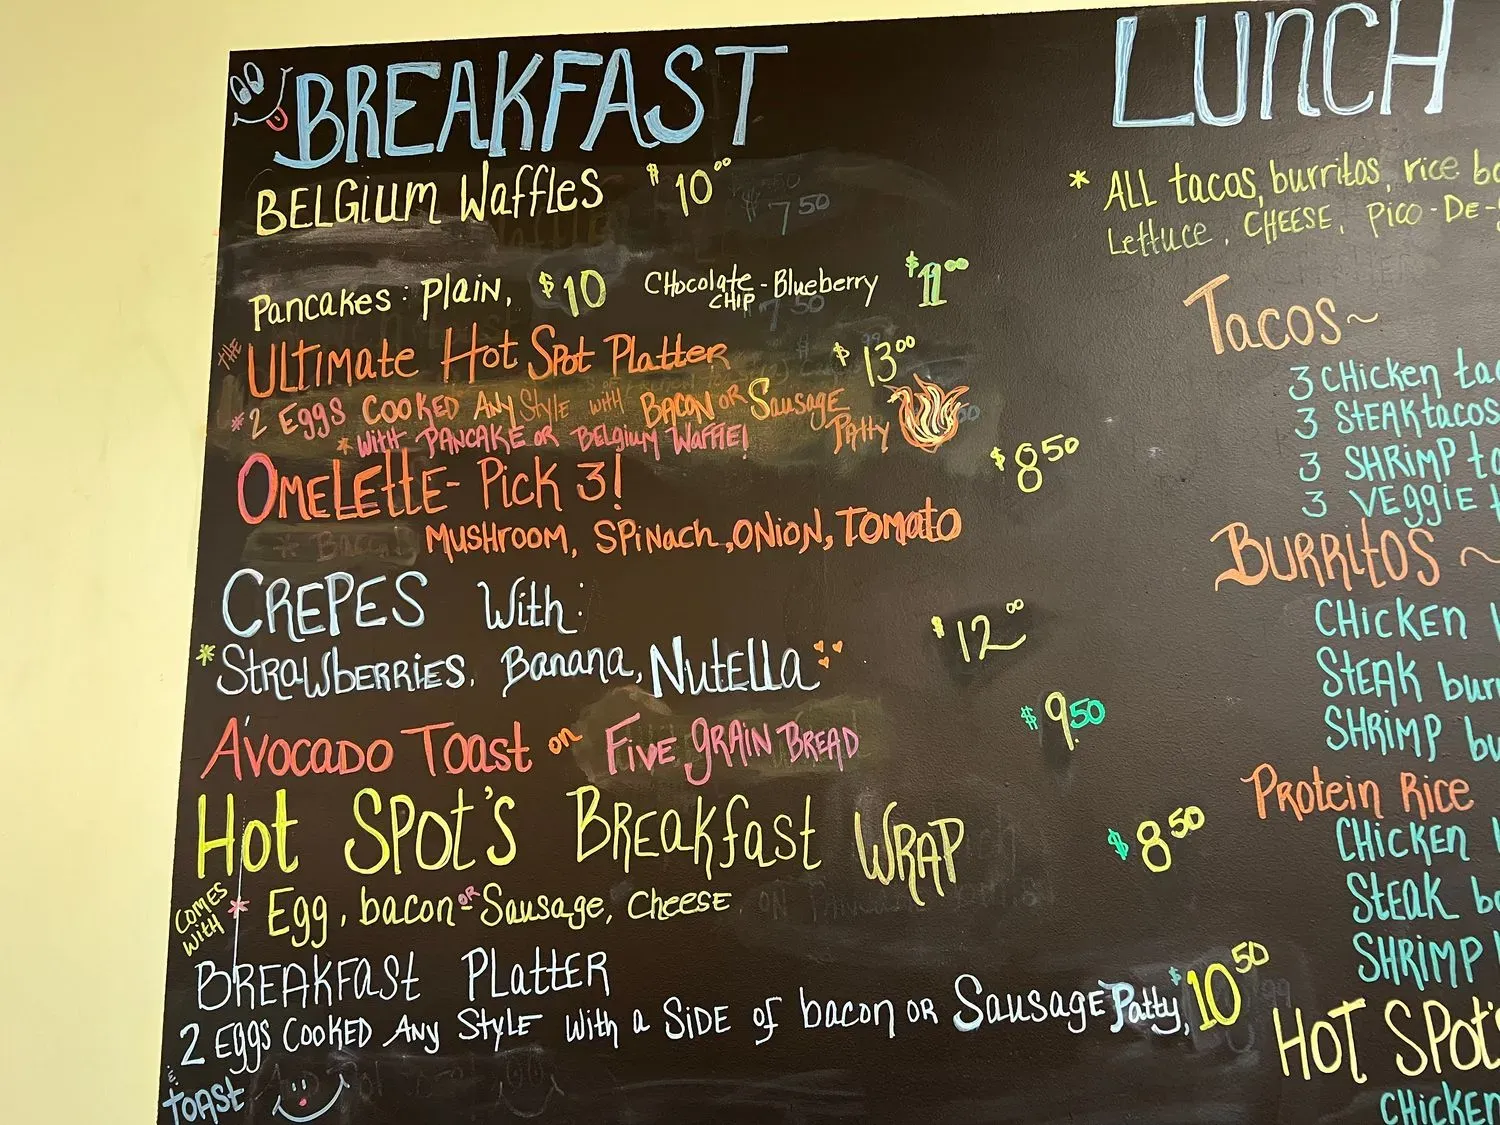 BREAKFAST
BELGIUM Waffles $10⁰⁰
$7⁵⁰
Pancakes: Plain, $10 CHocolate CHIP - Blueberry $11⁰⁰
7⁵⁰
THE ULTIMATE Hot Spot Platter $13⁰⁰
* 2 Eggs COOKED ANY STYLE with BACON OR Sausage Patty
* WITH PANCAKE OR BELGIUM WAFFLE!
OMELETTE - Pick 3! $8⁵⁰
MUSHROOM, SPinach, ONION, TOMATO
CREPES With:
* STRAWBERRIES, Banana, NUTELLA $12⁰⁰
AVOCADO TOAST on FIVE GRAIN BREAD $9.50
HOT SPOT'S BREAKfast WRAP $8⁵⁰
COMES WITH * Egg, bacon OR Sausage, CHEESE
BREAKFAST PLATTER
2 Eggs COOKED ANY STYLE with a SIDE of bacon OR SAUSAGE Patty, $10⁵⁰
& TOAST
LUNCH
* ALL tacos, burritos, rice
Lettuce, CHEESE, PICO-DE-
TACOS ~
3 CHicken
3 STEAK tacos
3 SHRIMP
3 VEGGIE
BURRITOS ~
CHICKEN
STEAK
SHRIMP
PROTEIN RICE
CHICKEN
STEAK
SHRIMP
HOT SPOT'S
CHICKEN